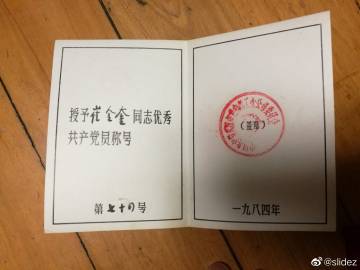 授予崔全奎同志优秀
共产党员称号
第七十四号
(盖章)
一九八四年
@slidez